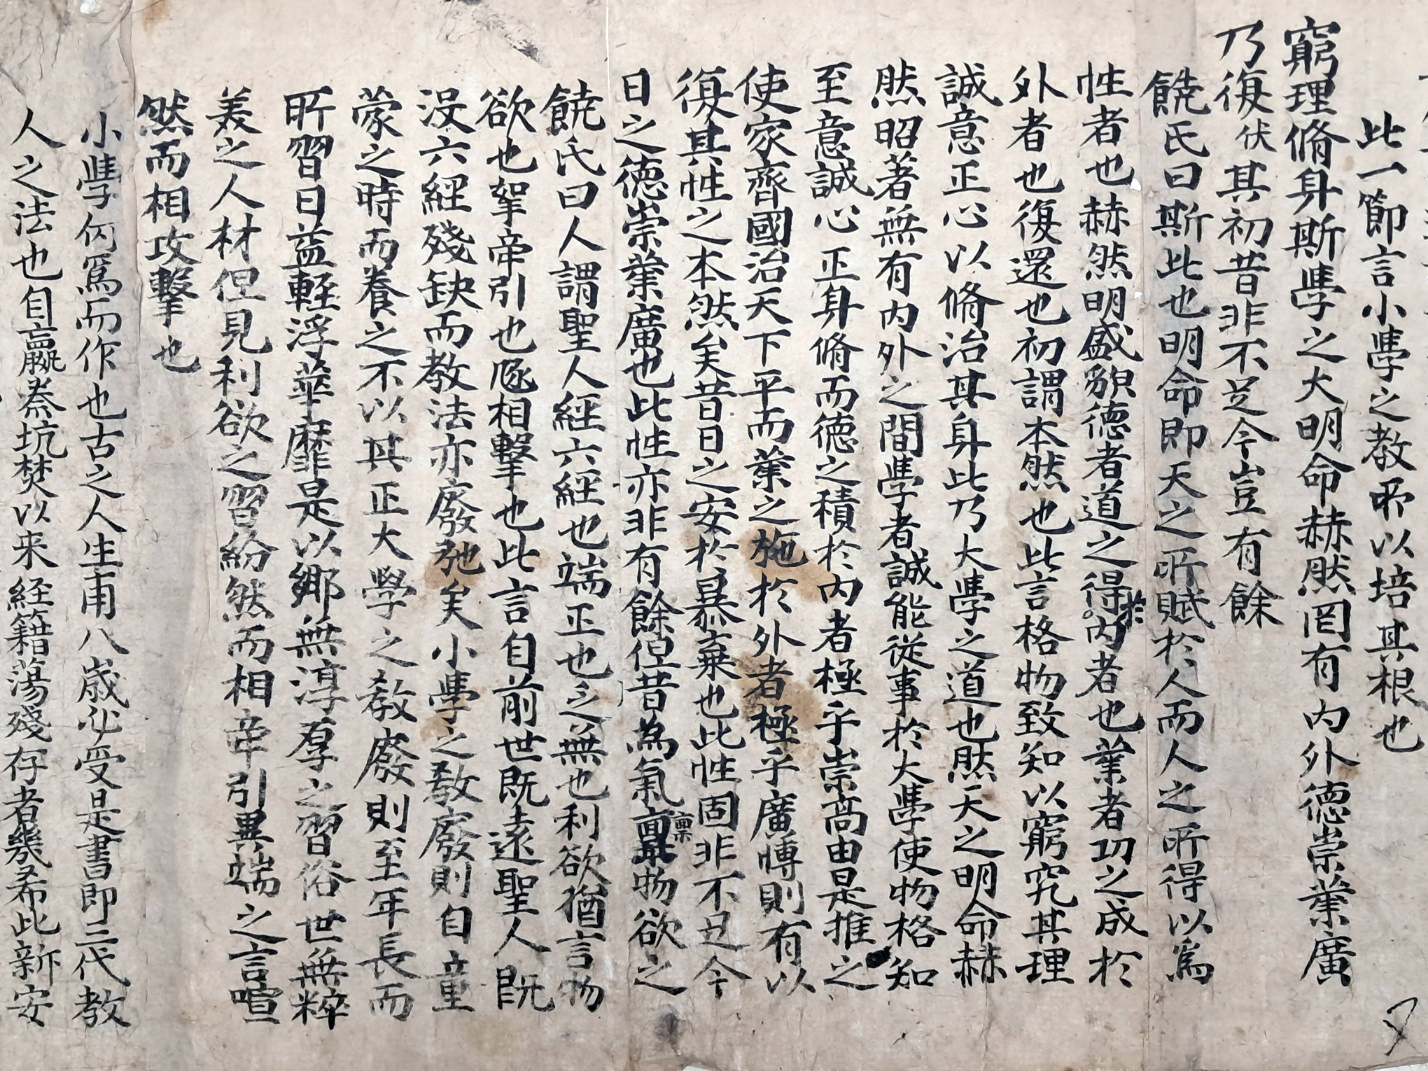 此一節言小學之教所以培其根也
窮理脩身斯學之大明命赫然罔有內外德崇業廣
乃復伏其初昔非不足今豈有餘
饒氏曰斯此也明命即天之所賦於人而人之所得以爲
性者也赫然明盛貌德者道之得於內者也業者功之成於
外者也復還也初謂本然也此言格物致知以窮究其理
誠意正心以脩治其身此乃大學之道也然天之明命赫
然昭著無有內外之間學者誠能從事於大學使物格知
至意誠心正身脩而德之積於內者極乎崇高由是推之
使家齊國治天下平而業之施於外者極乎廣博則有以
復其性之本然矣昔日之安於暴棄也此性固非不足今
日之德崇業廣也此性亦非有餘但昔為氣稟物欲之
饒氏曰人謂聖人經六經也端正也乏無也利欲猶言物
欲也挐牽引也豗相擊也此言自前世既遠聖人既
沒六經殘缺而教法亦廢弛矣小學之教廢則自童
蒙之時而養之不以其正大學之教廢則至年長而
所習日益輕浮華靡是以鄉無淳厚之習俗世無粹
美之人材但見利欲之習紛然而相牽引異端之言喧
然而相攻擊也
小學何爲而作也古之人生甫八歲必受是書即三代教
人之法也自嬴秦坑焚以来経籍蕩殘存者幾希此新安